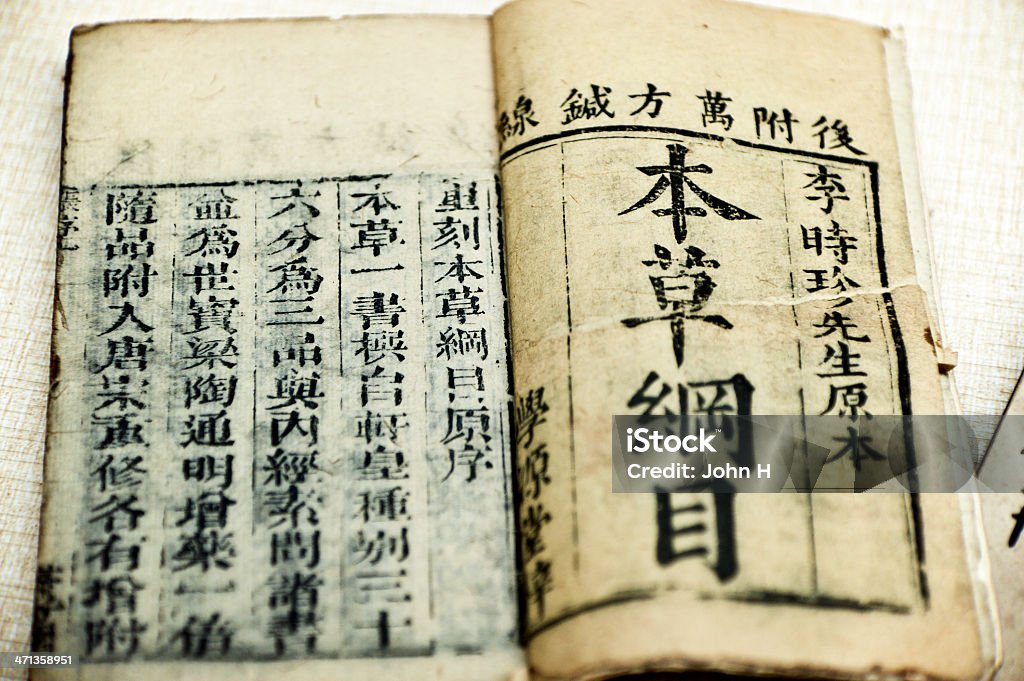 後附萬方鍼線
李時珍先生原本
本草綱目
學源堂梓
重刻本草綱目原序
本草一書撰自軒皇種別三十
六分爲三品與內經素問諸書
並爲世寶梁陶通明增藥一倍
隨品附入唐宋重修各有增附
iStock™
Credit: John H
471358951